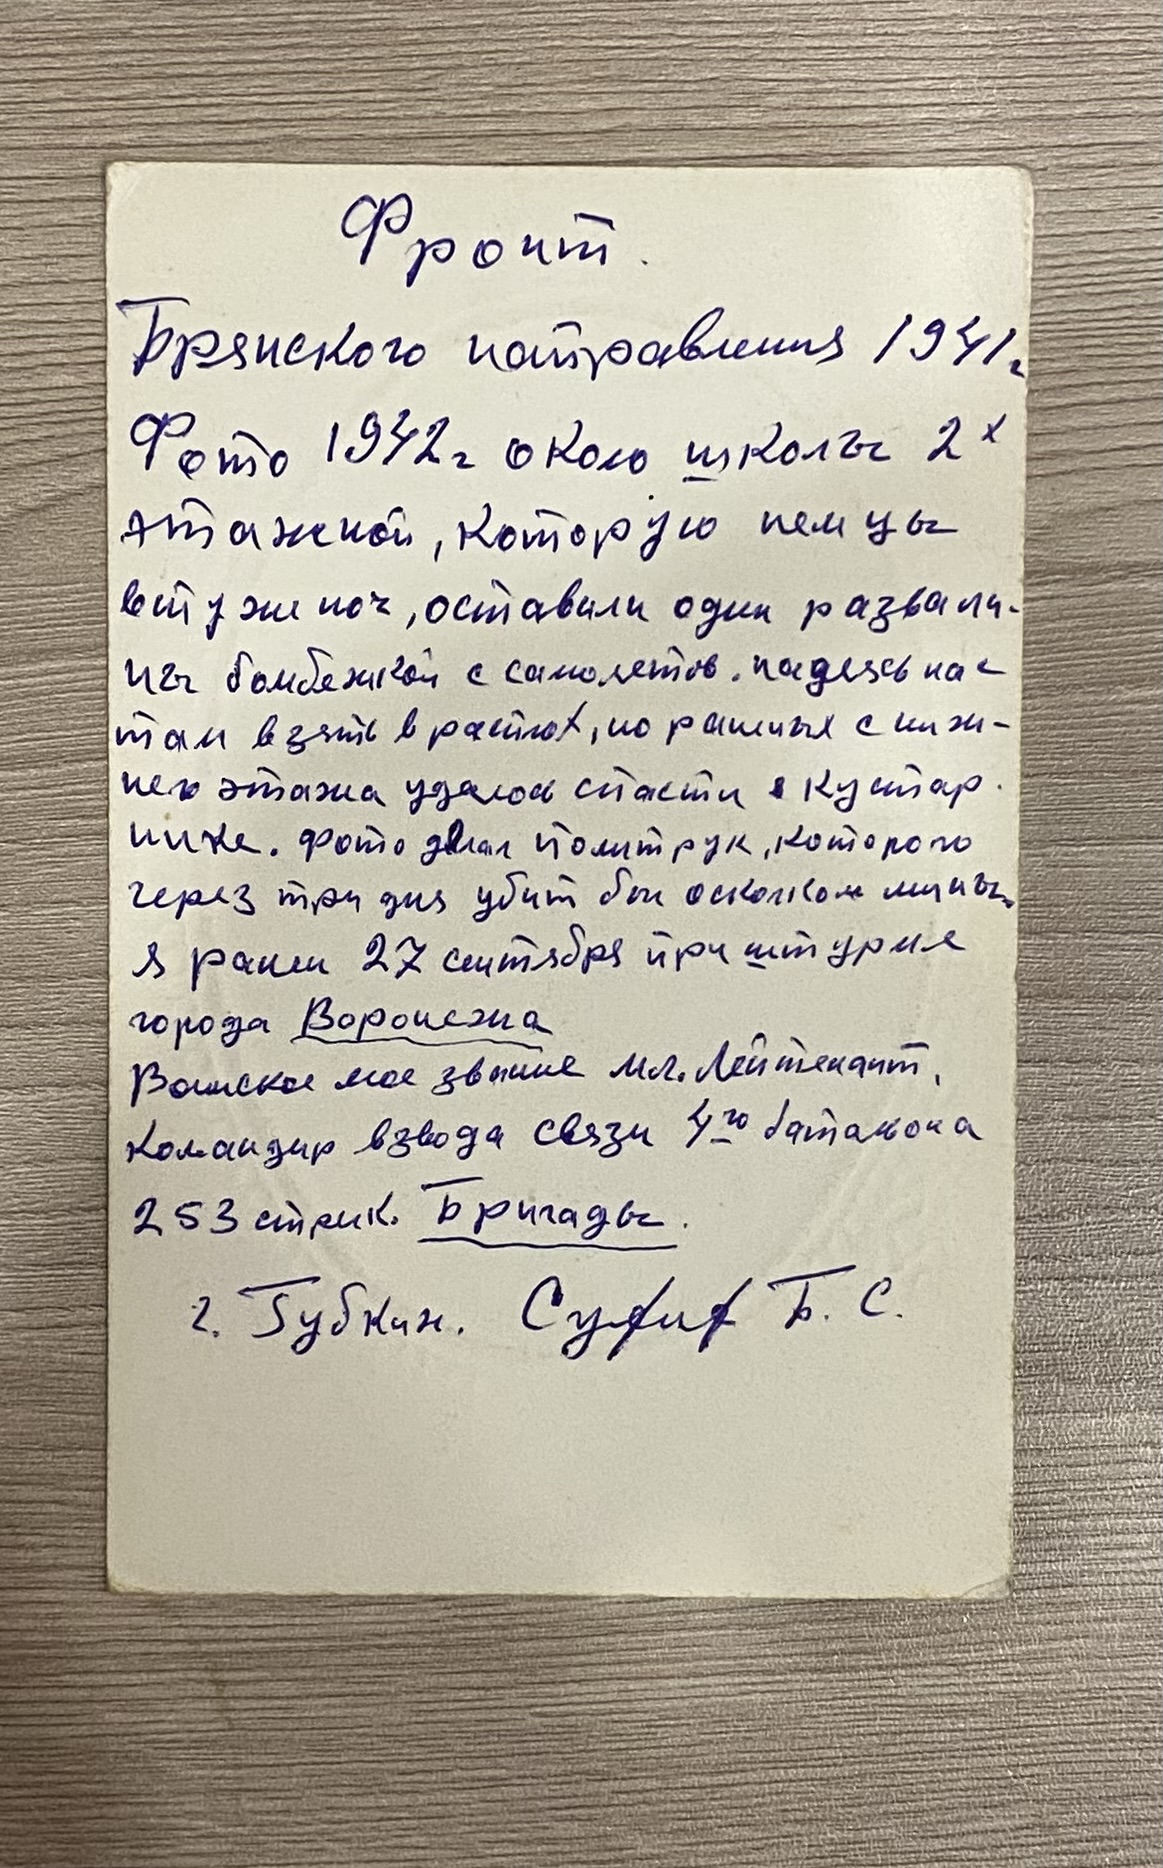 Фронт.
Брянского направления 1941г
Фото 1942г около школы 2х
этажной, которую немцы
в ту же ноч, оставили одни развали-
ны бомбежкой с самолетов. надеясь нас
там взять врасплох, но раненых с ниж-
него этажа удалось спасти в кустар.
нике. Фото делал политрук, которого
через три дня убит был осколком мины.
я ранен 27 сентября при штурме
города Воронежа
Воинское мое звание мл. Лейтенант,
командир взвода связи 4го батальона
253 стрелк. Бригады.
г. Губкин. Б. С.